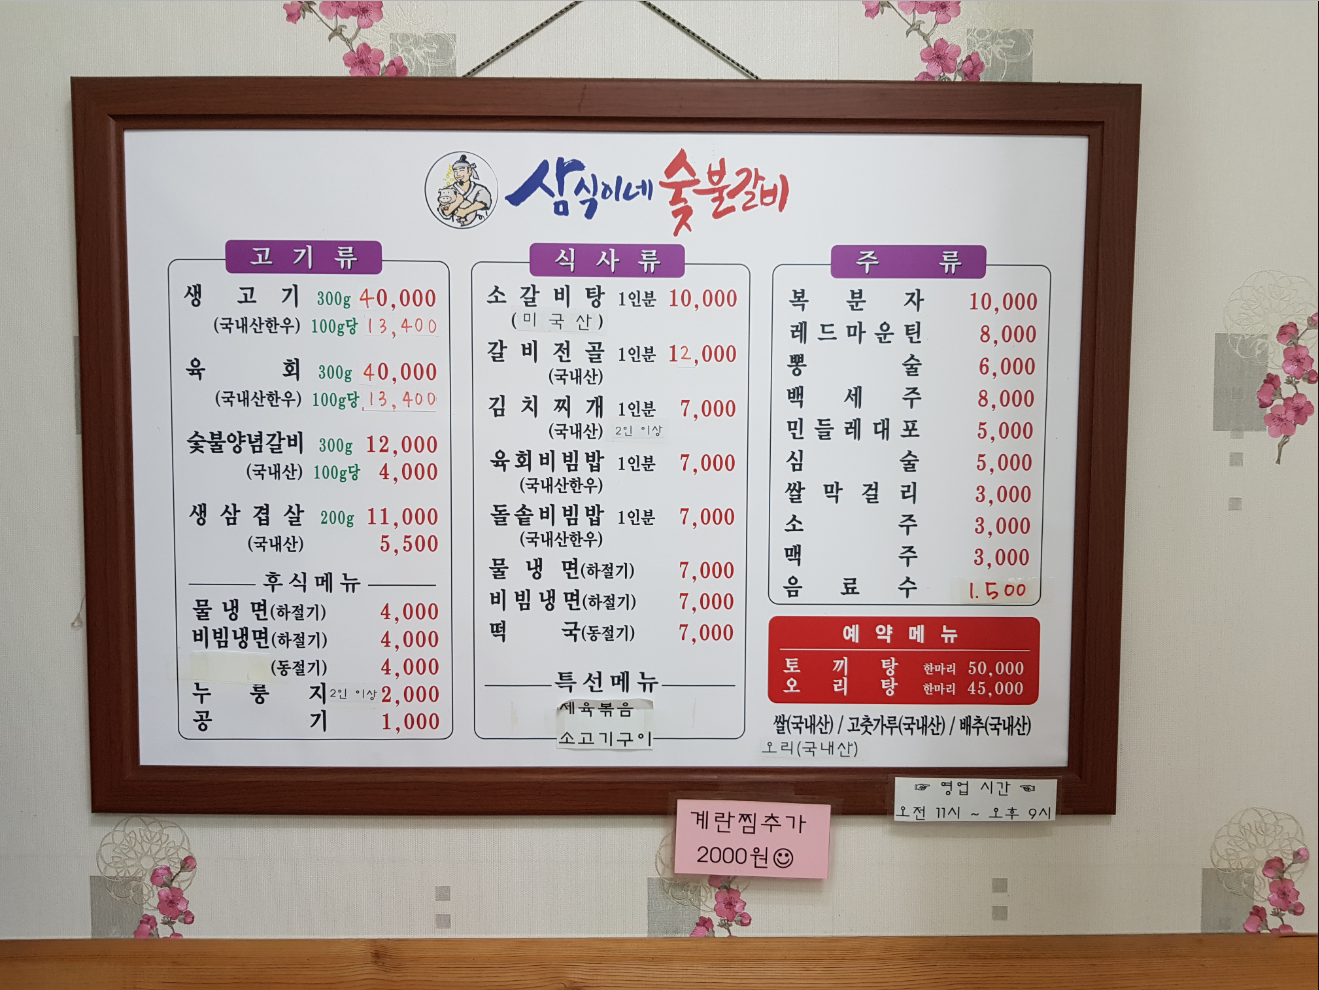 삼식이네 숯불갈비
고기류
생고기 300g 40,000
(국내산한우) 100g당 13,400
육회 300g 40,000
(국내산한우) 100g당 13,400
숯불양념갈비 300g 12,000
(국내산) 100g당 4,000
생삼겹살 200g 11,000
(국내산) 5,500
후식메뉴
물냉면(하절기) 4,000
비빔냉면(하절기) 4,000
(동절기) 4,000
누룽지 2인 이상 2,000
공기 1,000
식사류
소갈비탕 1인분 10,000
(미국산)
갈비전골 1인분 12,000
(국내산)
김치찌개 1인분 7,000
(국내산) 2인 이상
육회비빔밥 1인분 7,000
(국내산한우)
돌솥비빔밥 1인분 7,000
(국내산한우)
물냉면(하절기) 7,000
비빔냉면(하절기) 7,000
떡국(동절기) 7,000
특선메뉴
제육볶음
소고기구이
주류
복분자 10,000
레드마운틴 8,000
뽕술 6,000
백세주 8,000
민들레대포 5,000
심술 5,000
쌀막걸리 3,000
소주 3,000
맥주 3,000
음료수 1.500
예약메뉴
토끼탕 한마리 50,000
오리탕 한마리 45,000
쌀(국내산) / 고춧가루(국내산) / 배추(국내산)
오리(국내산)
☞ 영업 시간 ☜
오전 11시 ~ 오후 9시
계란찜추가
2000원☺